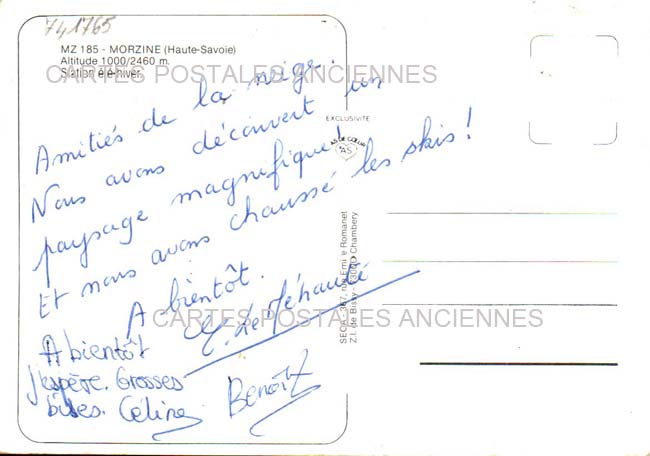 741765
MZ 185 - MORZINE (Haute-Savoie)
Altitude 1000/2460 m.
Station été-hiver
CARTES POSTALES ANCIENNES
Amitiés de la neige.
Nous avons découvert un
paysage magnifique!
Et nous avons chaussé les skis!
A bientôt.
A bientôt
j'espère. Grosses
bises. Céline
Benoît
EXCLUSIVITE
AS DE COEUR
AS
SECA - 367, rue Emi e Romanet
Z.I. de Bissy - 73000 Chambery
CARTES POSTALES ANCIENNES